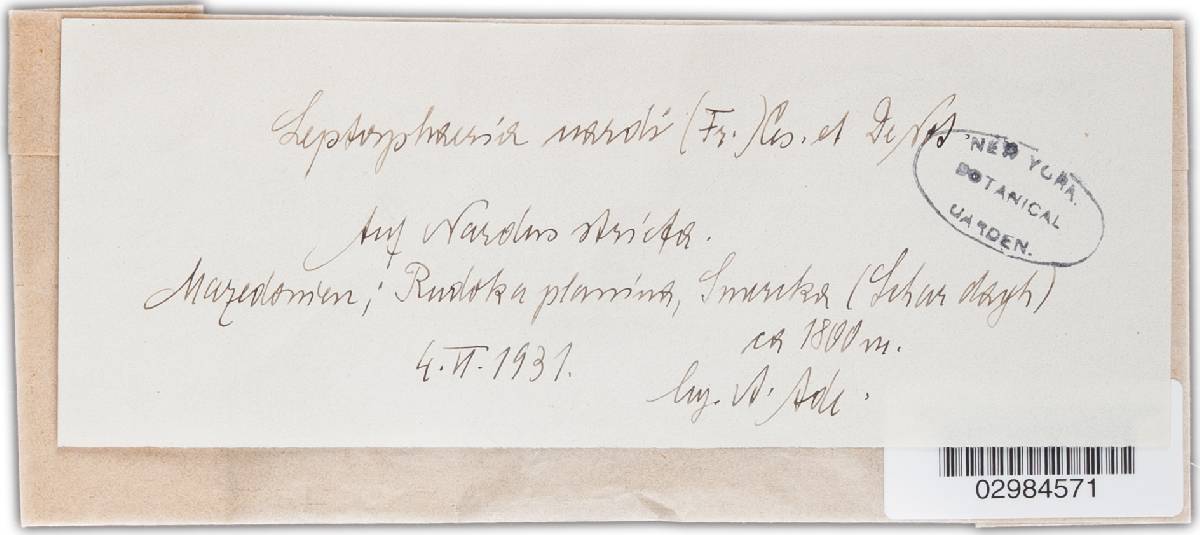 Leptosphaeria nardi (Fr.) Ces. et De Not
NEW YORK
BOTANICAL
GARDEN.
Auf Nardus stricta.
Mazedonien; Rudoka planina, Smreka (Schar dagh)
ca 1800 m.
4. VI. 1931.
leg. A. Ade.
02984571